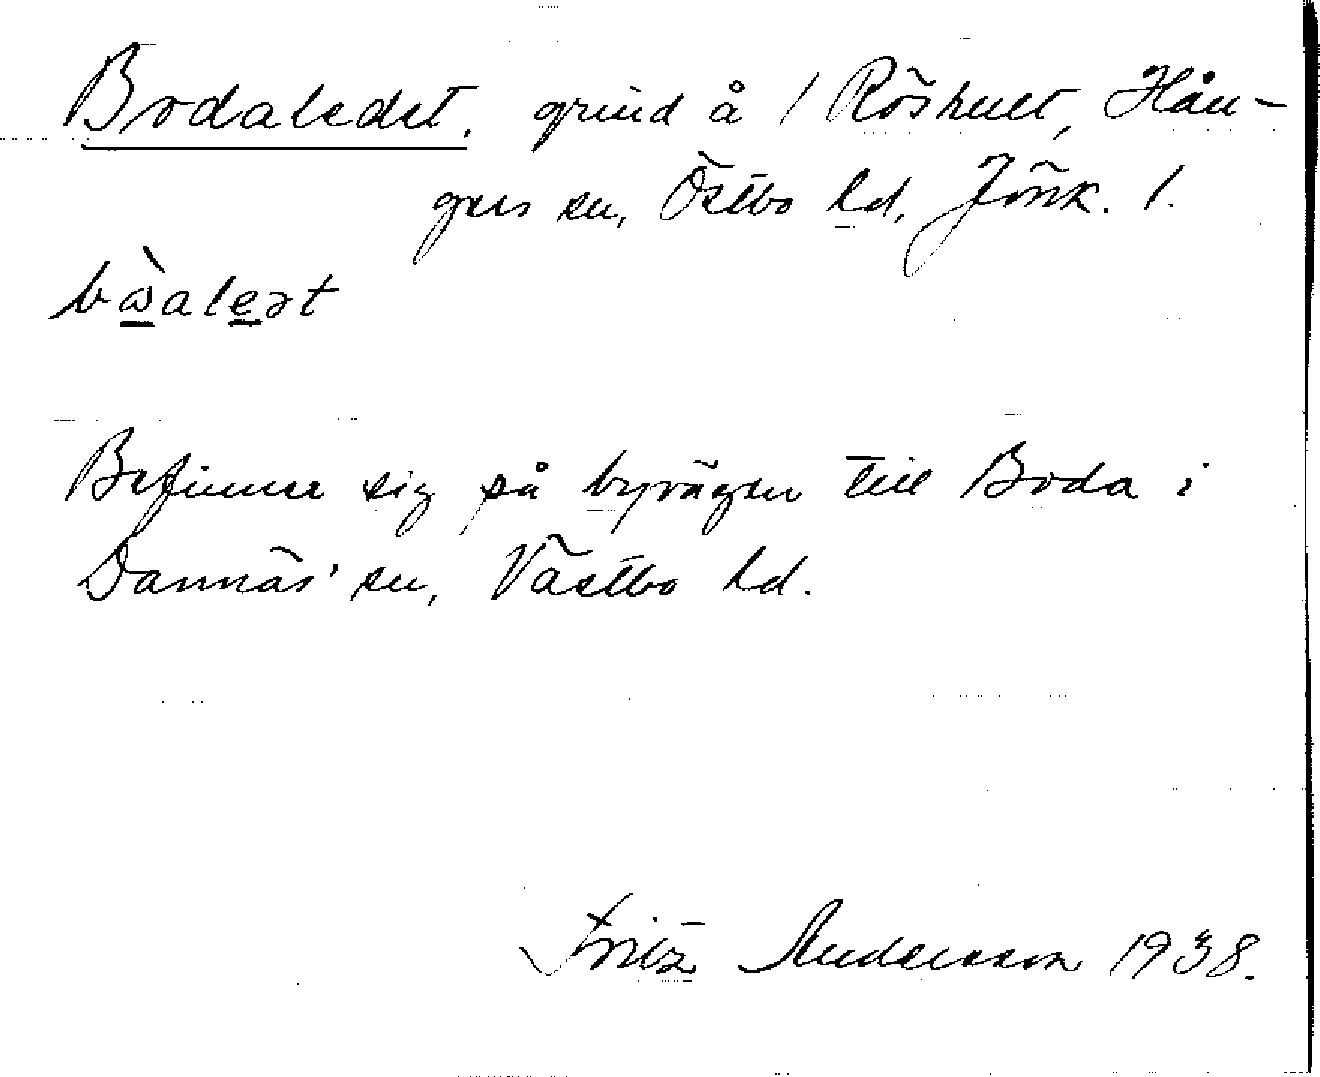 Bodaledet. grind å / Röshult, Hån-
gers sn, Östbo hd, Jönk. l.
Befinner sig på byvägen till Boda i
Dannäs' sn, Västbo hd.
Fritz Andersson 1938.